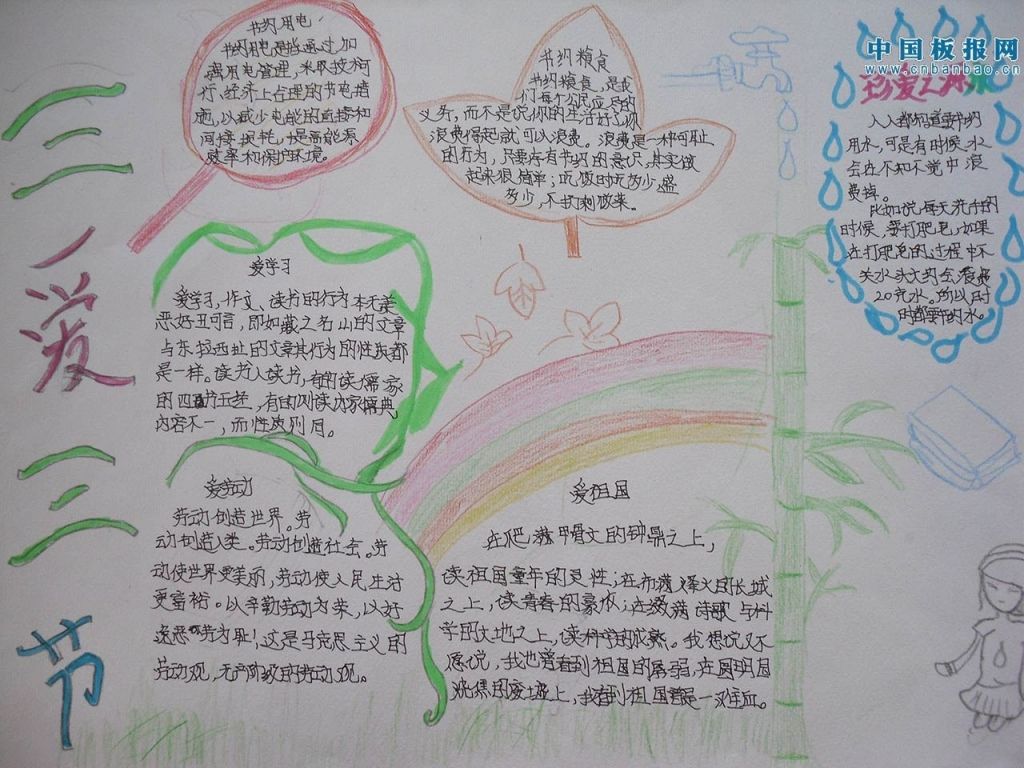 三
爱
三
节
节约用电
节约用电是指通过加
强用电管理，采取技术可
行、经济上合理的节电措
施，以减少电能的直接和
间接损耗，提高能源
效率和保护环境。
节约粮食
节约粮食，是我
们每个公民应尽的
义务，而不是说你的生活好了你
浪费得起就可以浪费。浪费是一种可耻
的行为，只要存有节约的意识，其实做
起来很简单：吃饭时吃多少盛
多少，不扔剩饭菜。
中国板报网
www.cnbanbao.cn
珍爱
人人都知道要节约
用水，可是有时候水
会在不知不觉中浪
费掉。
比如说，每天洗手的
时候，要打肥皂，如果
在打肥皂的过程中不
关水大约会浪费
20克水。所以时
时都要节约水。
爱学习
爱学习，作文、读书的行为本无美
恶好丑可言，即如藏之名山的文章
与东拉西扯的文章其行为的性质都
是一样。读书人读书，有的读儒家
的四书五经，有的则读
内容不一，而性质则同。
爱劳动
劳动创造世界。劳
动创造人类。劳动创造社会。劳
动使世界更美丽，劳动使人民生活
更富裕。以辛勤劳动为荣，以好
逸恶劳为耻！这是马克思主义的
劳动观，无产阶级的劳动观。
爱祖国
在爬满甲骨文的钟鼎之上，
读祖国童年的灵性；在布满烽火的长城
之上，读青春的豪放；在缀满诗歌与科
学的大地之上，读科学的成熟。我想说又不
愿说，我也曾看到祖国的孱弱，在圆明园
烧焦的废墟上，我看到祖国曾是一滩血。